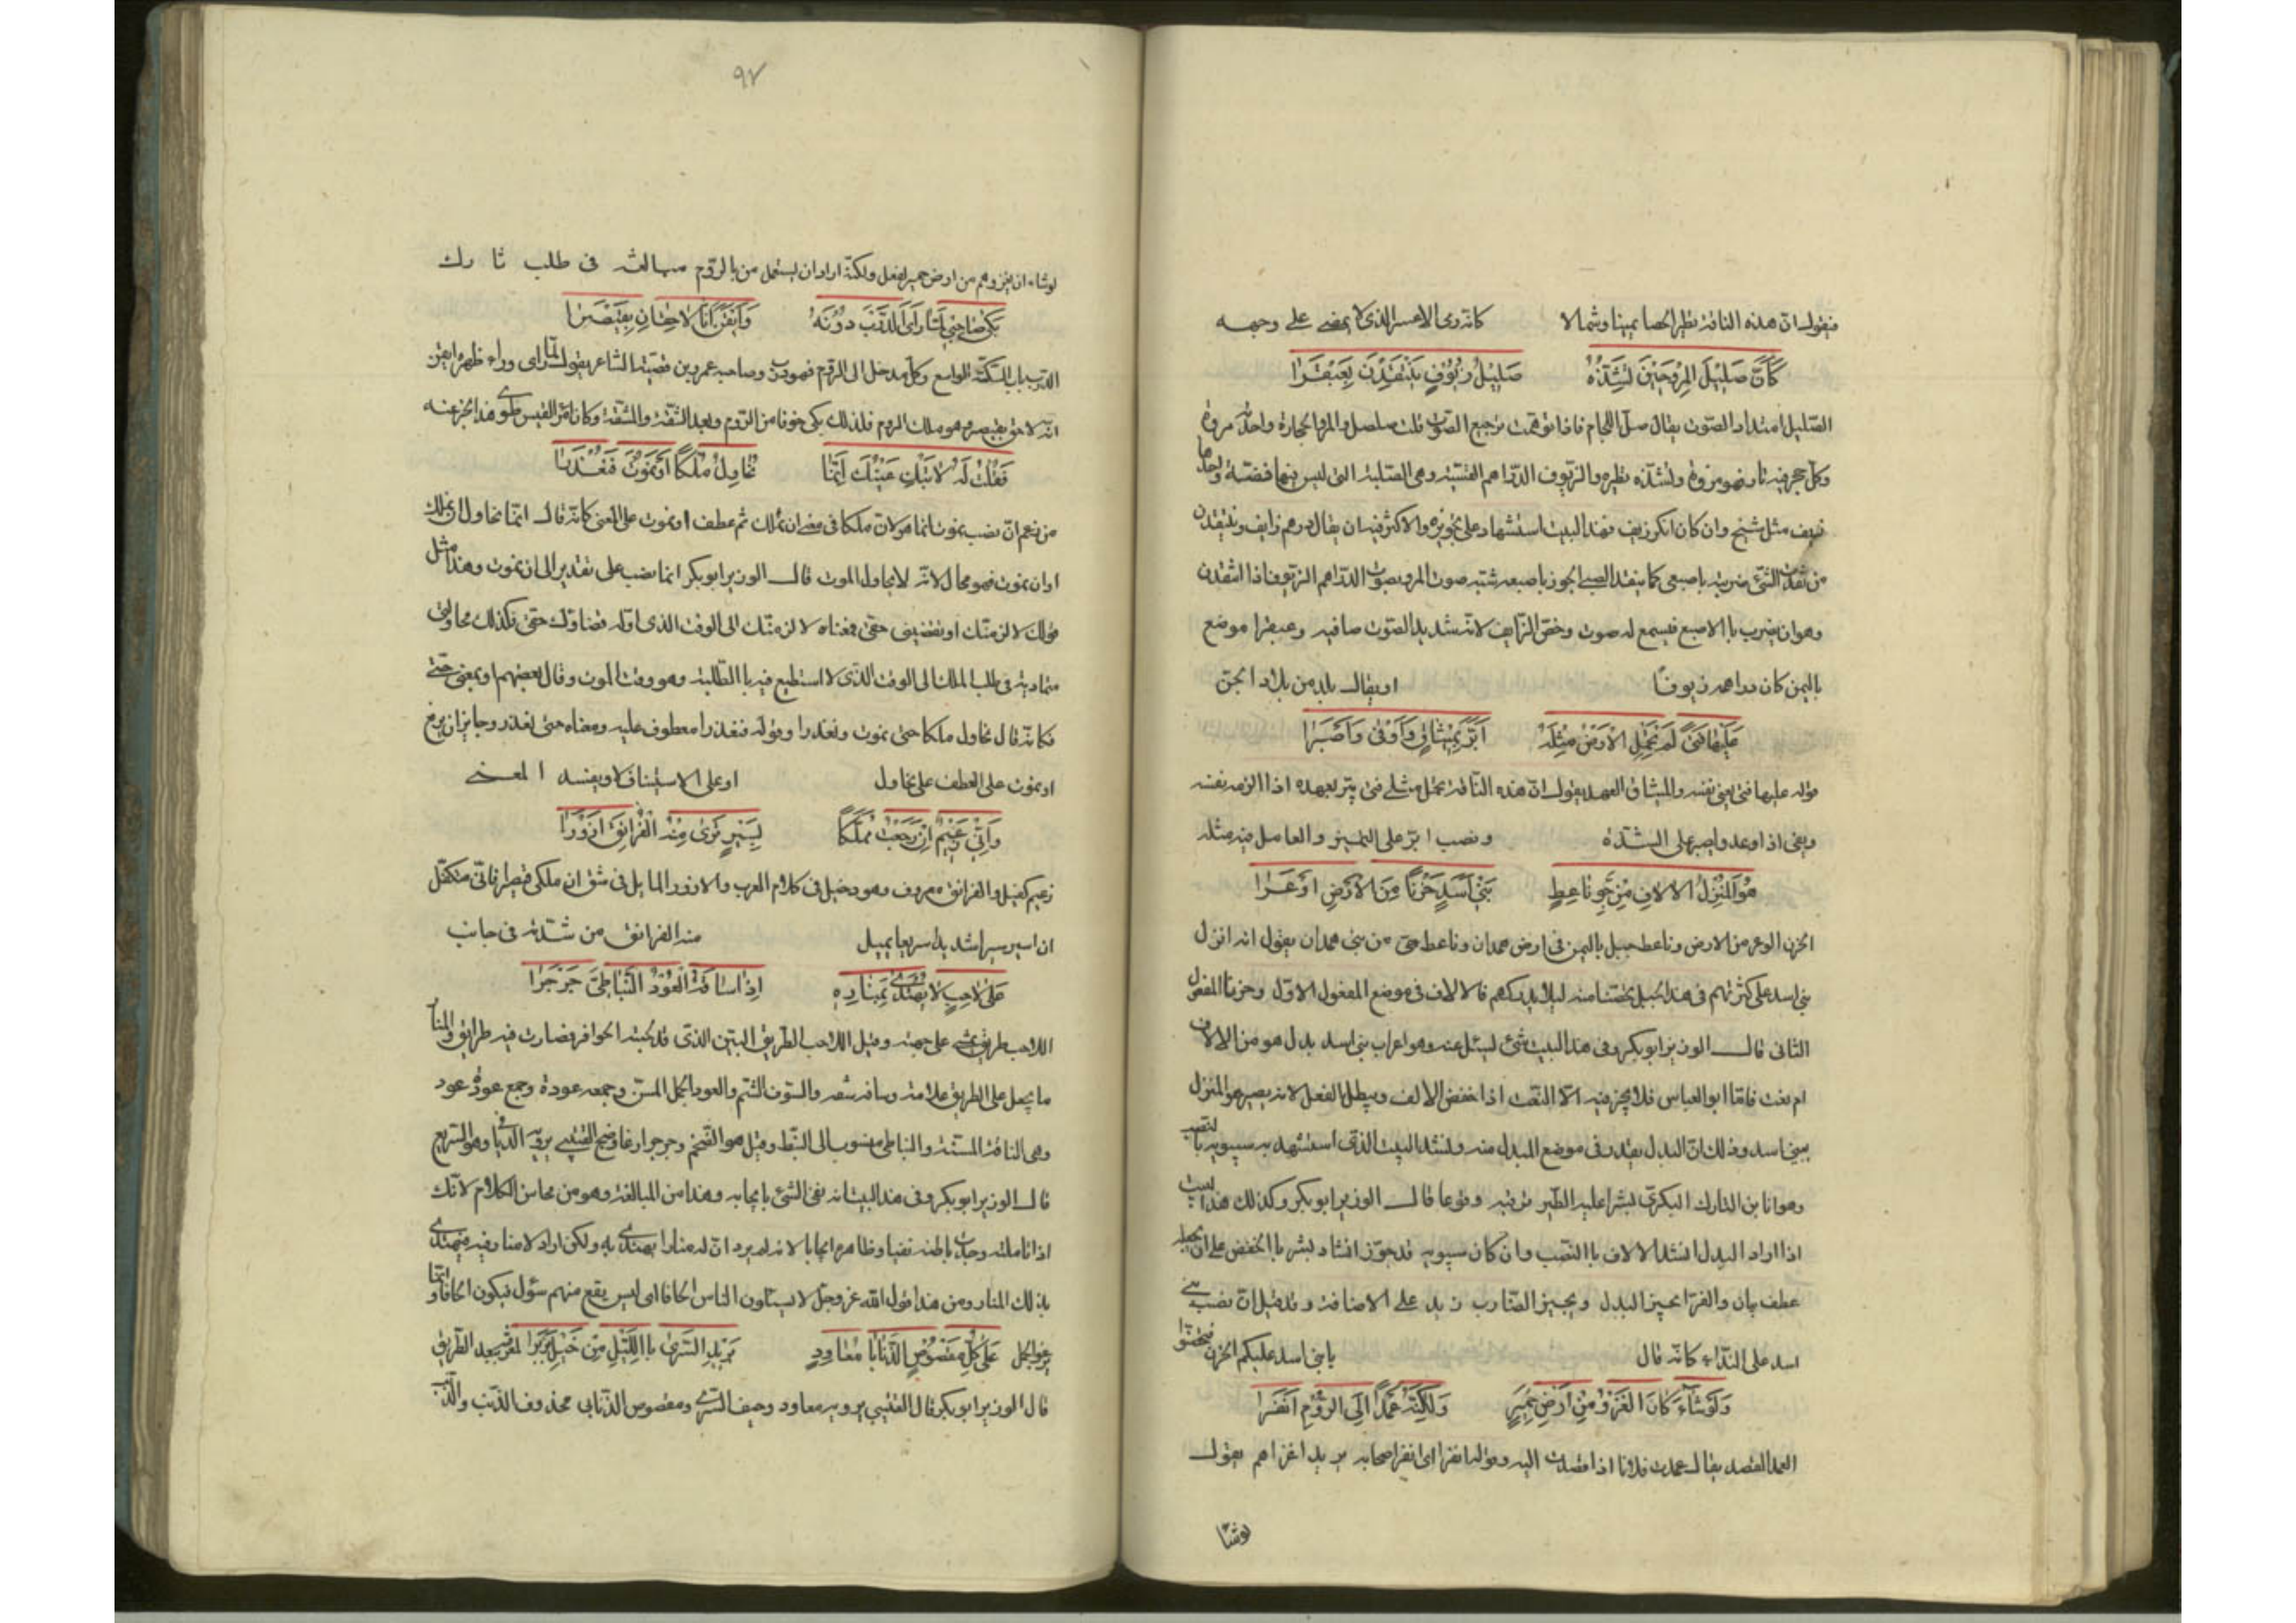 فيقول ان هذه الناقة تطير الحصا يمينا وشمالا كانه رمى الاعسر الذى لا يمضى على وجهه
كَأَنَّ صَلِيلَ المَرْوِ حِينَ تُشِذُّهُ صَلِيلُ زُيُوُفٍ يُنْتَقَدْنَ بِعَبْقَرَا
الصليل امتداد الصوت يقال صل اللجام فاذا توهمت ترجيع الصوت قلت صلصل والمرو الحجارة واحدته مروة
وكل حجر فيه نار فهو مروة وتشذه تطيره والزيوف الدراهم القسية وهى الصلبة التى ليس فيها فضة واحدها
زيف مثل شيخ وان كان انكر زيف فهذا البيت استشهاد على تجويزه والاكثر فيه ان يقال درهم زايف وينتقدن
من نقدت الشئ ضربته باصبعى كما ينقد الصبى الجوز باصبعه شبه صوت المرو بصوت الدراهم الزيوف اذا انتقدن
وهو ان يضرب باالاصبع فيسمع له صوت وخص الزايف لانه شديد الصوت صافيه وعبقرا موضع
باليمن كان دراهمه زيوفا اويقال بلد من بلاد الجن
عَلَيْهَا فَتًى لَمْ تَحْمِلِ الاَرْضُ مِثْلَهُ اَبَرَّ بِمِيْثَاقٍ وَاَوْفٰى وَاَصْبَرَا
قوله عليها فتى يعنى نفسه والميثاق العهد يقول ان هذه الناقة تحمل مثلى فتى يبر بعهده اذا الزمه نفسه
ويفى اذا وعد واصبر على الشدة ونصب ابر على التمييز والعامل فيه مثله
هُوَ الْمُنْزِلُ الالَافِ مِنْ جَوِّ نَاعِطٍ بَنِى اَسَدٍ حَزْنًا مِنَ الاَرْضِ اَوْعَرَا
الحزن الوعر من الارض وناعط جبل باليمن فى ارض همدان وناعط حى من بنى همدان يقول انه انزل
بنى اسد على كثرتهم فى هذا الجبل تحصنا منه ليلا يدركهم فالالاف فى موضع المفعول الاول وحزنا المفعول
الثانى قال الوزير ابوبكر وفى هذا البيت شئ ليسئل عنه وهو اعراب بنى اسد بدل هو من الالاف
ام نعت فاما ابوالعباس فلا يجز فيه الا النعت اذا خفض الالف ويبطل الفعل لانه يصير هو المنزل
ببنى اسد وذلك ان البدل يقدر فى موضع المبدل منه وينشد البيت الذى استشهد به سيبويه باالنصب
وهو انا بن التارك البكرى بشرا عليه الطير ترقبه وقوعا قال الوزير ابوبكر وكذلك هذا البيت
اذا اراد البدل انشد الالاف باالنصب وان كان سيبويه قد جوز انشاد بشر باالخفض على ان يجعله
عطف بيان والفرا يجيز البدل ويجيز الضارب زيد على الاضافة وقد قيل ان نصب بنى
اسد على النداء كانه قال يابنى اسد عليكم الحزن فتحصنوا
وَلَوْ شَاءَ كَانَ الْغَزْوُ مِنْ اَرْضِ حِمْيَرٍ وَلٰكِنَّهُ عَمْدًا اِلَى الرُّوْمِ اَنْفَرَا
العمد القصد يقال عمدت فلانا اذا قصدت اليه وقوله انفرا اى انفر اصحابه يريد اغزاهم يقول
لوشا
٩٧
لوشاء ان يغزوهم من ارض حمير لفعل ولكنه اراد ان يستعمل من باالروم مبالغة فى طلب ثارك
بَكٰى صَاحِبِى لَمَّا رَأَى الدَّرْبَ دُوْنَهُ وَاَيْقَنَ اَنَّا لَاحِقَانِ بِقَيْصَرَا
الدرب باب السكة الواسع وكل مدخل الى الروم فهو درب وصاحبه عمرو بن قميئة الشاعر يقول لما راى وراء ظهره ايقن
انه لاحق بقيصر وهو ملك الروم فلذلك بكى خوفا من الروم وبعد الشقة والمشقة وكان امرؤ القيس طوى هذا الخبر عنه
فَقُلْتُ لَهُ لَا تَبْكِ عَيْنُكَ اِنَّمَا نُحَاوِلُ مُلْكًا اَوْ نَمُوْتَ فَنُعْذَرَا
من زعم ان نصب نموت انما هو لان ملكا فى معنى ان نملك ثم عطف اونموت على المعنى كانه قال انما نحاول ان نملك
اوان نموت فهو محال لانه لا يحاول الموت قال الوزير ابوبكر انما نصب على تقدير الى ان نموت وهذا مثل
قولك لالزمنك اوتقضينى حقى فمعناه لالزمنك الى الوقت الذى اوله قضاوك حقى فكذلك محاولتى
متمادية فى طلب الملك الى الوقت الذى لا استطيع فيه باالطلبة وهو وقت الموت وقال بعضهم او بمعنى حتى
فكانه قال نحاول ملكا حتى نموت ونعذرا وقوله فنعذرا معطوف عليه ومعناه حتى نعذر وجايز ان يرفع
اونموت على العطف على نحاول اوعلى الاستيناف ولا ويفسد المعنى
وَاِنِّى زَعِيْمٌ اِنْ رَجَعْتُ مُمَلَّكًا بِسَيْرٍ تَرٰى مِنْهُ الْفُرَانِقَ اَزْوَرَا
زعيم كفيل والفرانق معروف وهو دخيل فى كلام العرب والازور المايل فى شق ان ملكى قيصر فانى متكفل
ان اسير سيرا شديدا سريعا يميل منه الفرانق من شدته فى جانب
عَلٰى لَاحِبٍ لَا يُهْتَدٰى بِمَنَارِهِ اِذَا سَافَهُ الْعَوْدُ النُّبَاطِىُّ جَرْجَرَا
اللاحب طريق يمشى على جهته وقيل اللاحب الطريق البين الذى قد لحبته الحوافر فصارت فيه طرايق والمنار
ما يجعل على الطريق علامة وسافه شمه والسوف الشم والعود الجمل المسن وجمعه عودة وجمع عودة عود
وهى الناقة المسنة والنباطى منسوب الى النبط وقيل هو الضخم وجرجر ارغا وضج القتيبى يرويه الديافى وهو السريع
قال الوزير ابوبكر وفى هذا البيت انه نفى الشئ بايجابه وهذا من المبالغة وهو من محاسن الكلام لانك
اذا تاملته وجدت باطنه نفيا وظاهره ايجابا لانه لم يرد ان له منارا يهتدى به ولكن اراد لا منار فيه فيهتدى
بذلك المنار ومن هذا قول الله عز وجل لا يسئلون الناس الحافا اى ليس يقع منهم سؤل فيكون الحافا وانما
يرغوا الجمل عَلٰى كُلِّ مَقْصُوْصِ الذُّنَابَا مُعَاوِدٍ بَرِيْدَ السُّرٰى بااللَّيْلِ مِنْ خَيْلِ بَرْبَرَا لمعرفته ببعد الطريق
قال الوزير ابوبكر قال القتيبى يرويه معاود وجيف السرى ومقصوص الذنابى محذوف الذنب والذنب